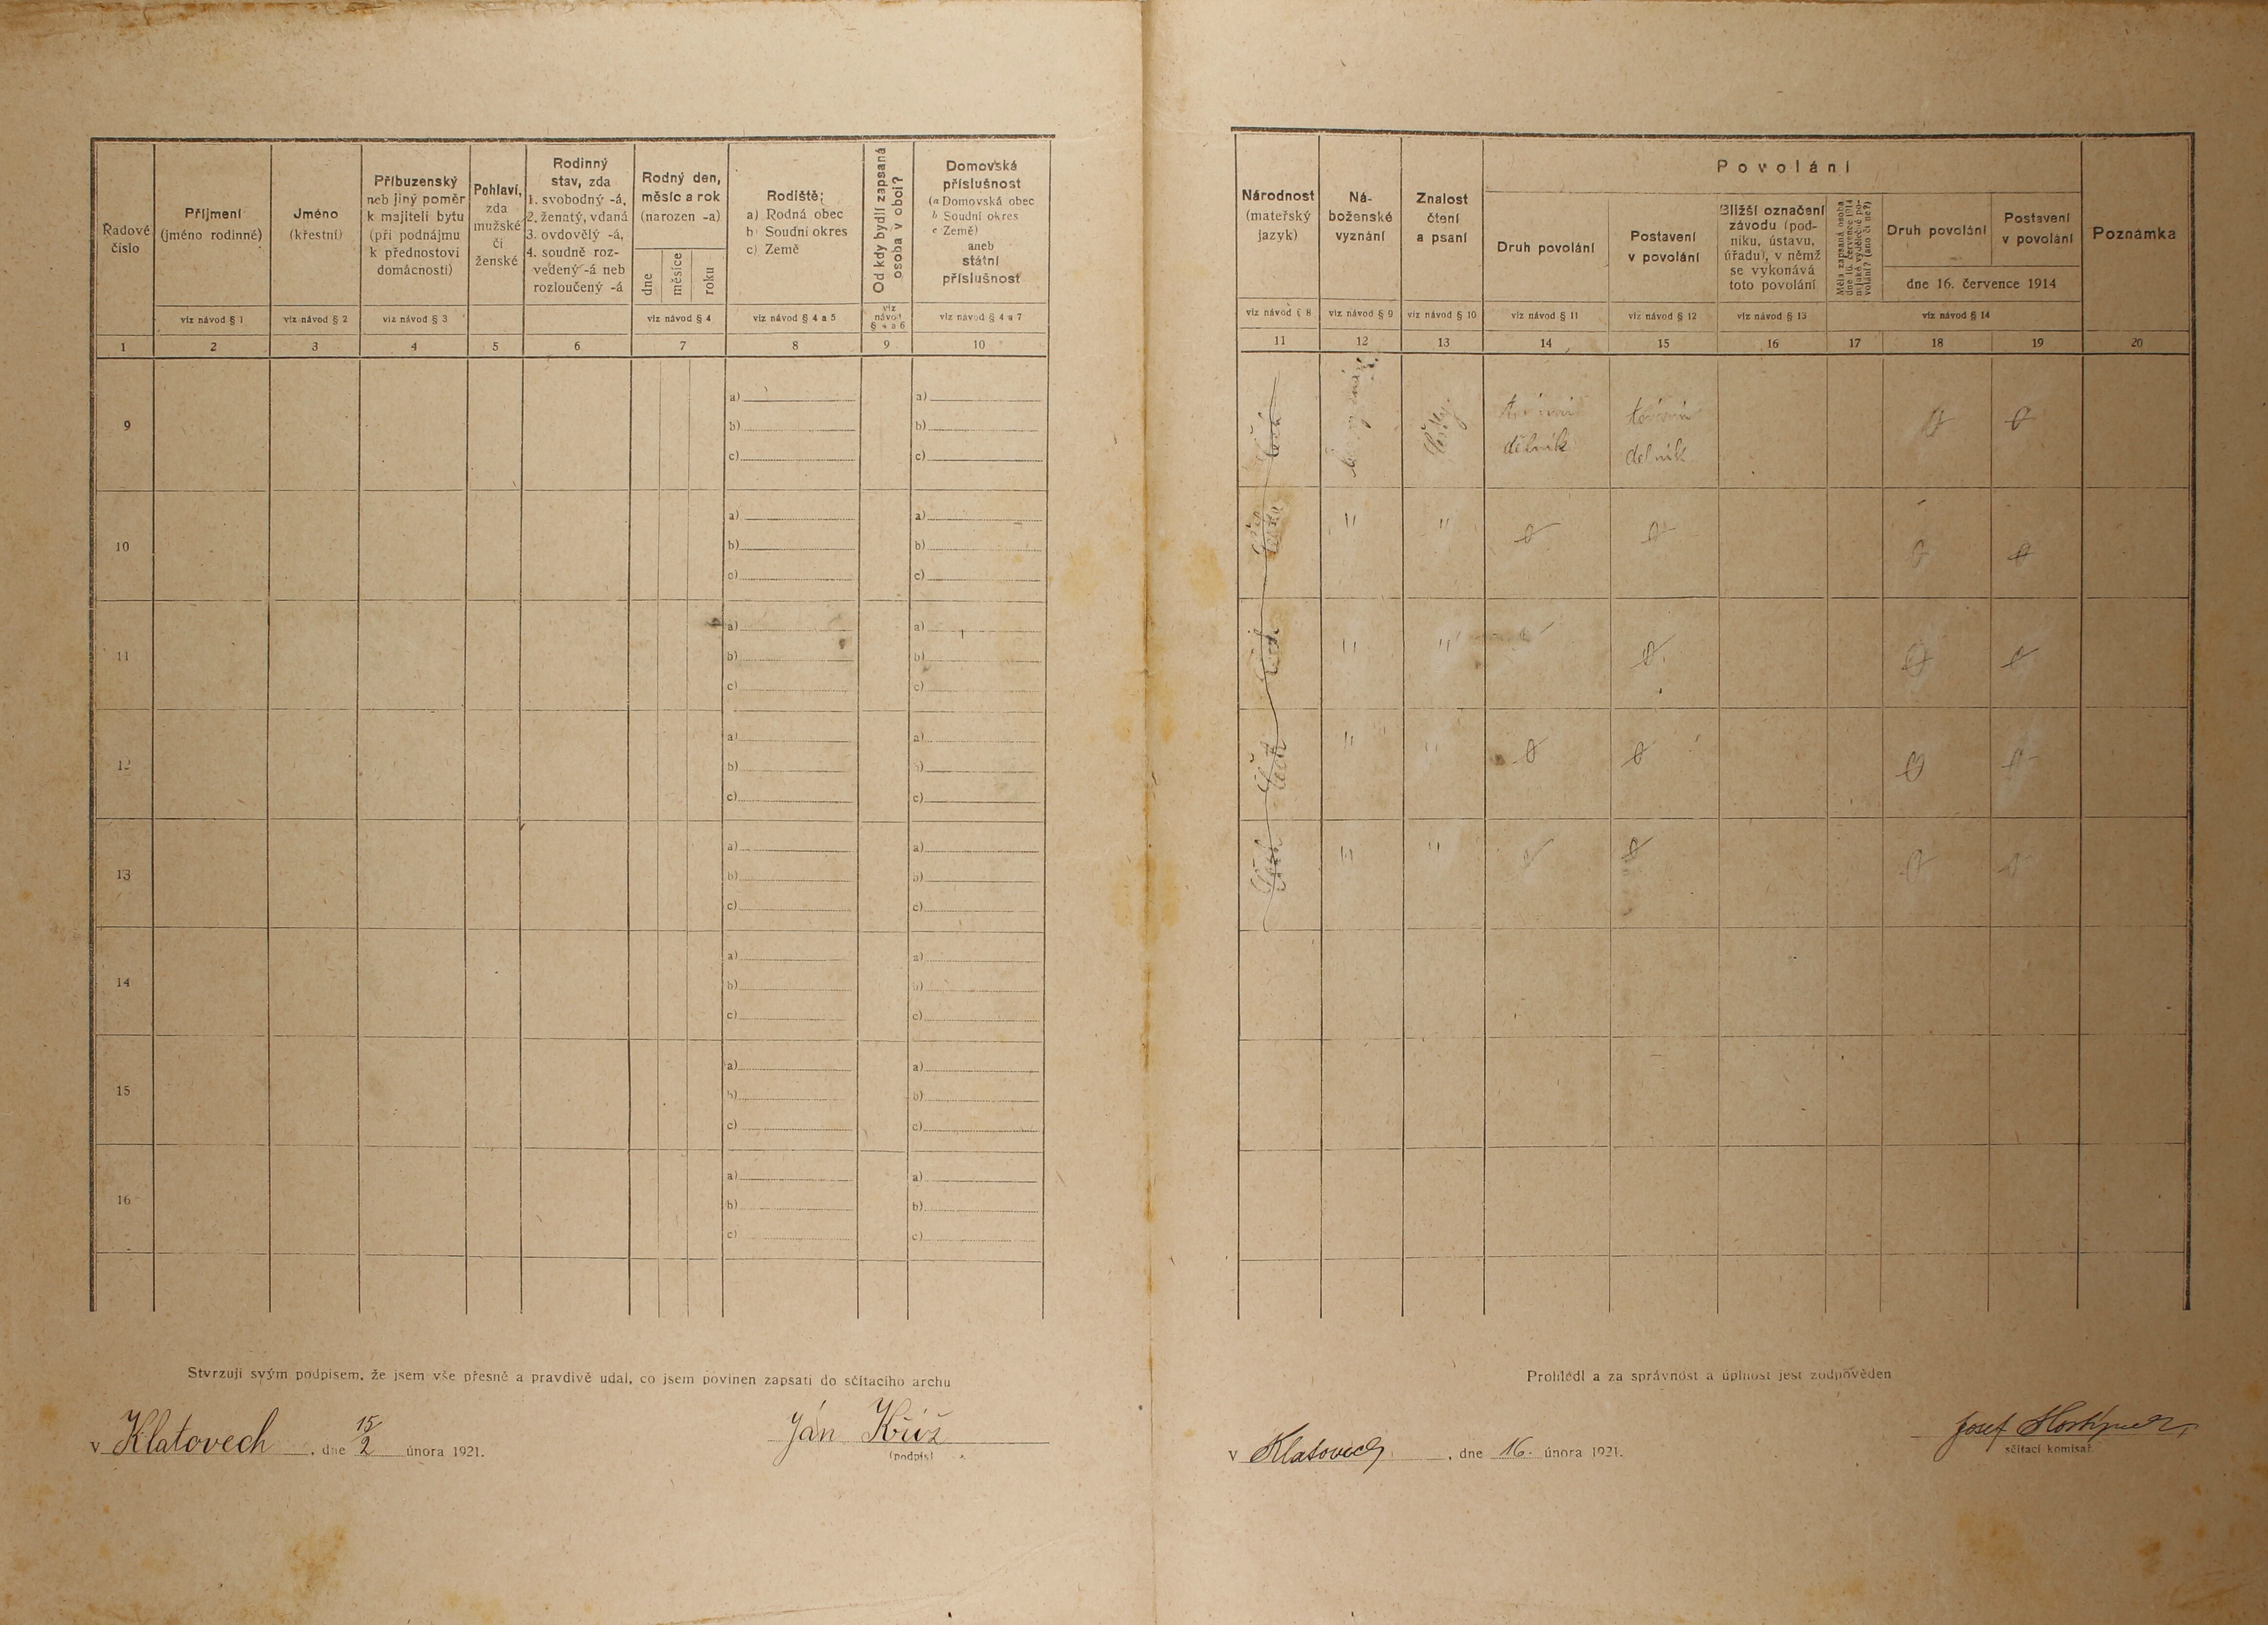 Řadové číslo
Příjmení
(jméno rodinné)
viz návod § 1
Jméno
(křestní)
viz návod § 2
Příbuzenský
neb jiný poměr
k majiteli bytu
(při podnájmu
k přednostovi
domácnosti)
viz návod § 3
Pohlaví,
zda
mužské
či
ženské
Rodinný
stav, zda
1. svobodný -á,
2. ženatý, vdaná
3. ovdovělý -á,
4. soudně roz-
vedený -á neb
rozloučený -á
Rodný den,
měsíc a rok
(narozen -a)
dne
měsíce
roku
viz návod § 4
Rodiště:
a) Rodná obec
b) Soudní okres
c) Země
viz návod § 4 a 5
Od kdy bydlí zapsaná
osoba v obci?
viz
návod
§ 4 a 6
Domovská
příslušnost
(a Domovská obec
b Soudní okres
c Země)
aneb
státní
příslušnost
viz návod § 4 a 7
1 2 3 4 5 6 7 8 9 10
9
a) a)
b) b)
c) c)
10
a) a)
b) b)
c) c)
11
a) a)
b) b)
c) c)
12
a) a)
b) b)
c) c)
13
a) a)
b) b)
c) c)
14
a) a)
b) b)
c) c)
15
a) a)
b) b)
c) c)
16
a) a)
b) b)
c) c)
Stvrzuji svým podpisem, že jsem vše přesně a pravdivě udal, co jsem povinen zapsati do sčítacího archu
v Klatovech, dne 15/2 února 1921.
Ján Kříž
(podpis)
Národnost
(mateřský
jazyk)
viz návod § 8
Ná-
boženské
vyznání
viz návod § 9
Znalost
čtení
a psaní
viz návod § 10
Povolání
Druh povolání
viz návod § 11
Postavení
v povolání
viz návod § 12
Bližší označení
závodu (pod-
niku, ústavu,
úřadu), v němž
se vykonává
toto povolání
viz návod § 13
Měla zapsaná osoba
dne 16. července 1914
nějaké výdělečné po-
volání? (ano či ne?)
Druh povolání
Postavení
v povolání
dne 16. července 1914
viz návod § 14
Poznámka
11 12 13 14 15 16 17 18 19 20
dělník
dělník
" "
" "
" "
" "
Prohlédl a za správnost a úplnost jest zodpověden
v Klatovech, dne 16. února 1921.
Josef
sčítací komisař